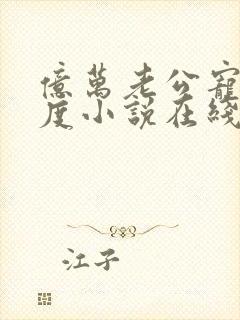 億萬老公寵
度小說在綫
江子